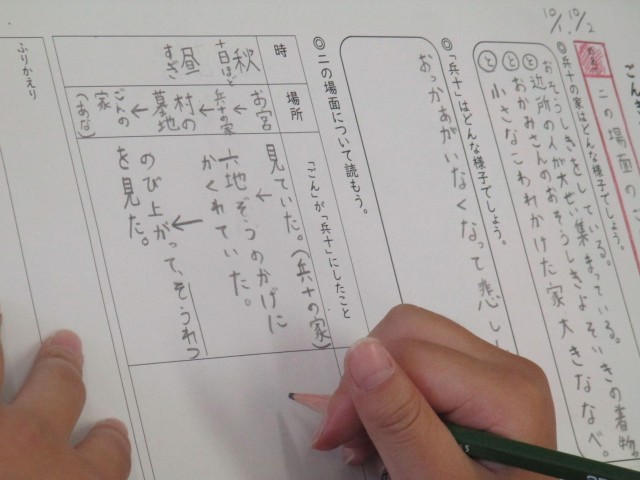 10/1、10/2
ごん
二の場面の
◎兵十の家はどんな様子でしょう。
おそうしきをしている。集まっている。
近所の人が大せい
おかみさんのおそうしき よそいきの着物。
小さなこわれかけた家 大きななべ。
◎「兵十」はどんな様子でしょう。
おっかあがいなくなって悲し
◎二の場面について読もう。
時
場所
「ごん」が「兵十」にしたこと
秋
十日ほど
昼
すぎ
お宮
兵十の家
村の
墓地
ごんの
家
(あな)
見ていた。(兵十の家)
六地ぞうのかげに
かくれていた。
のび上がって、そうれつ
を見た。
ふりかえり